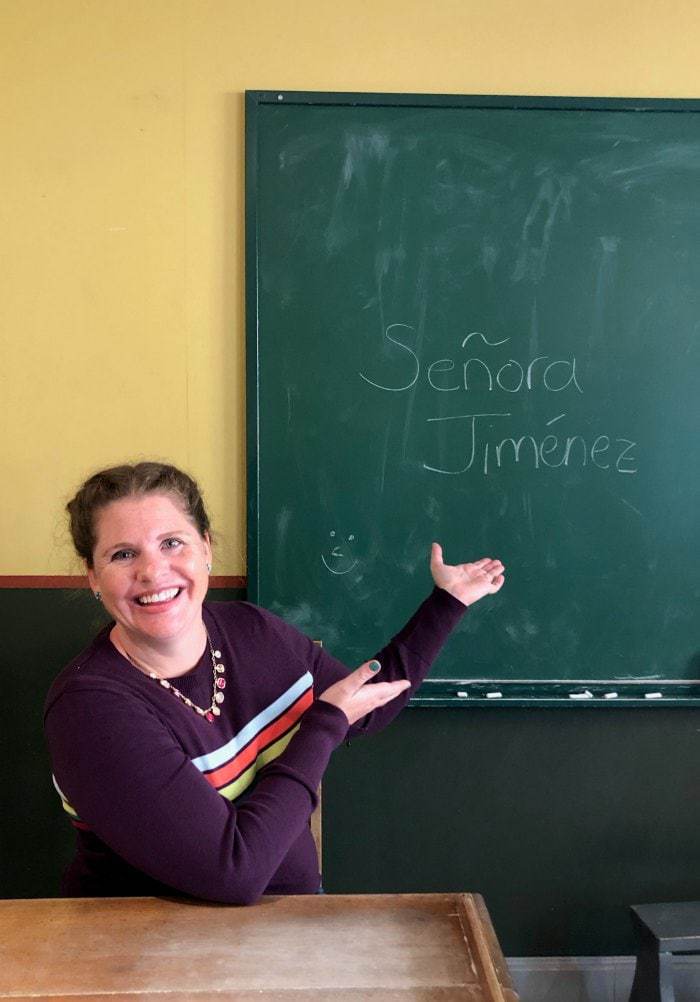 Señora
Jiménez